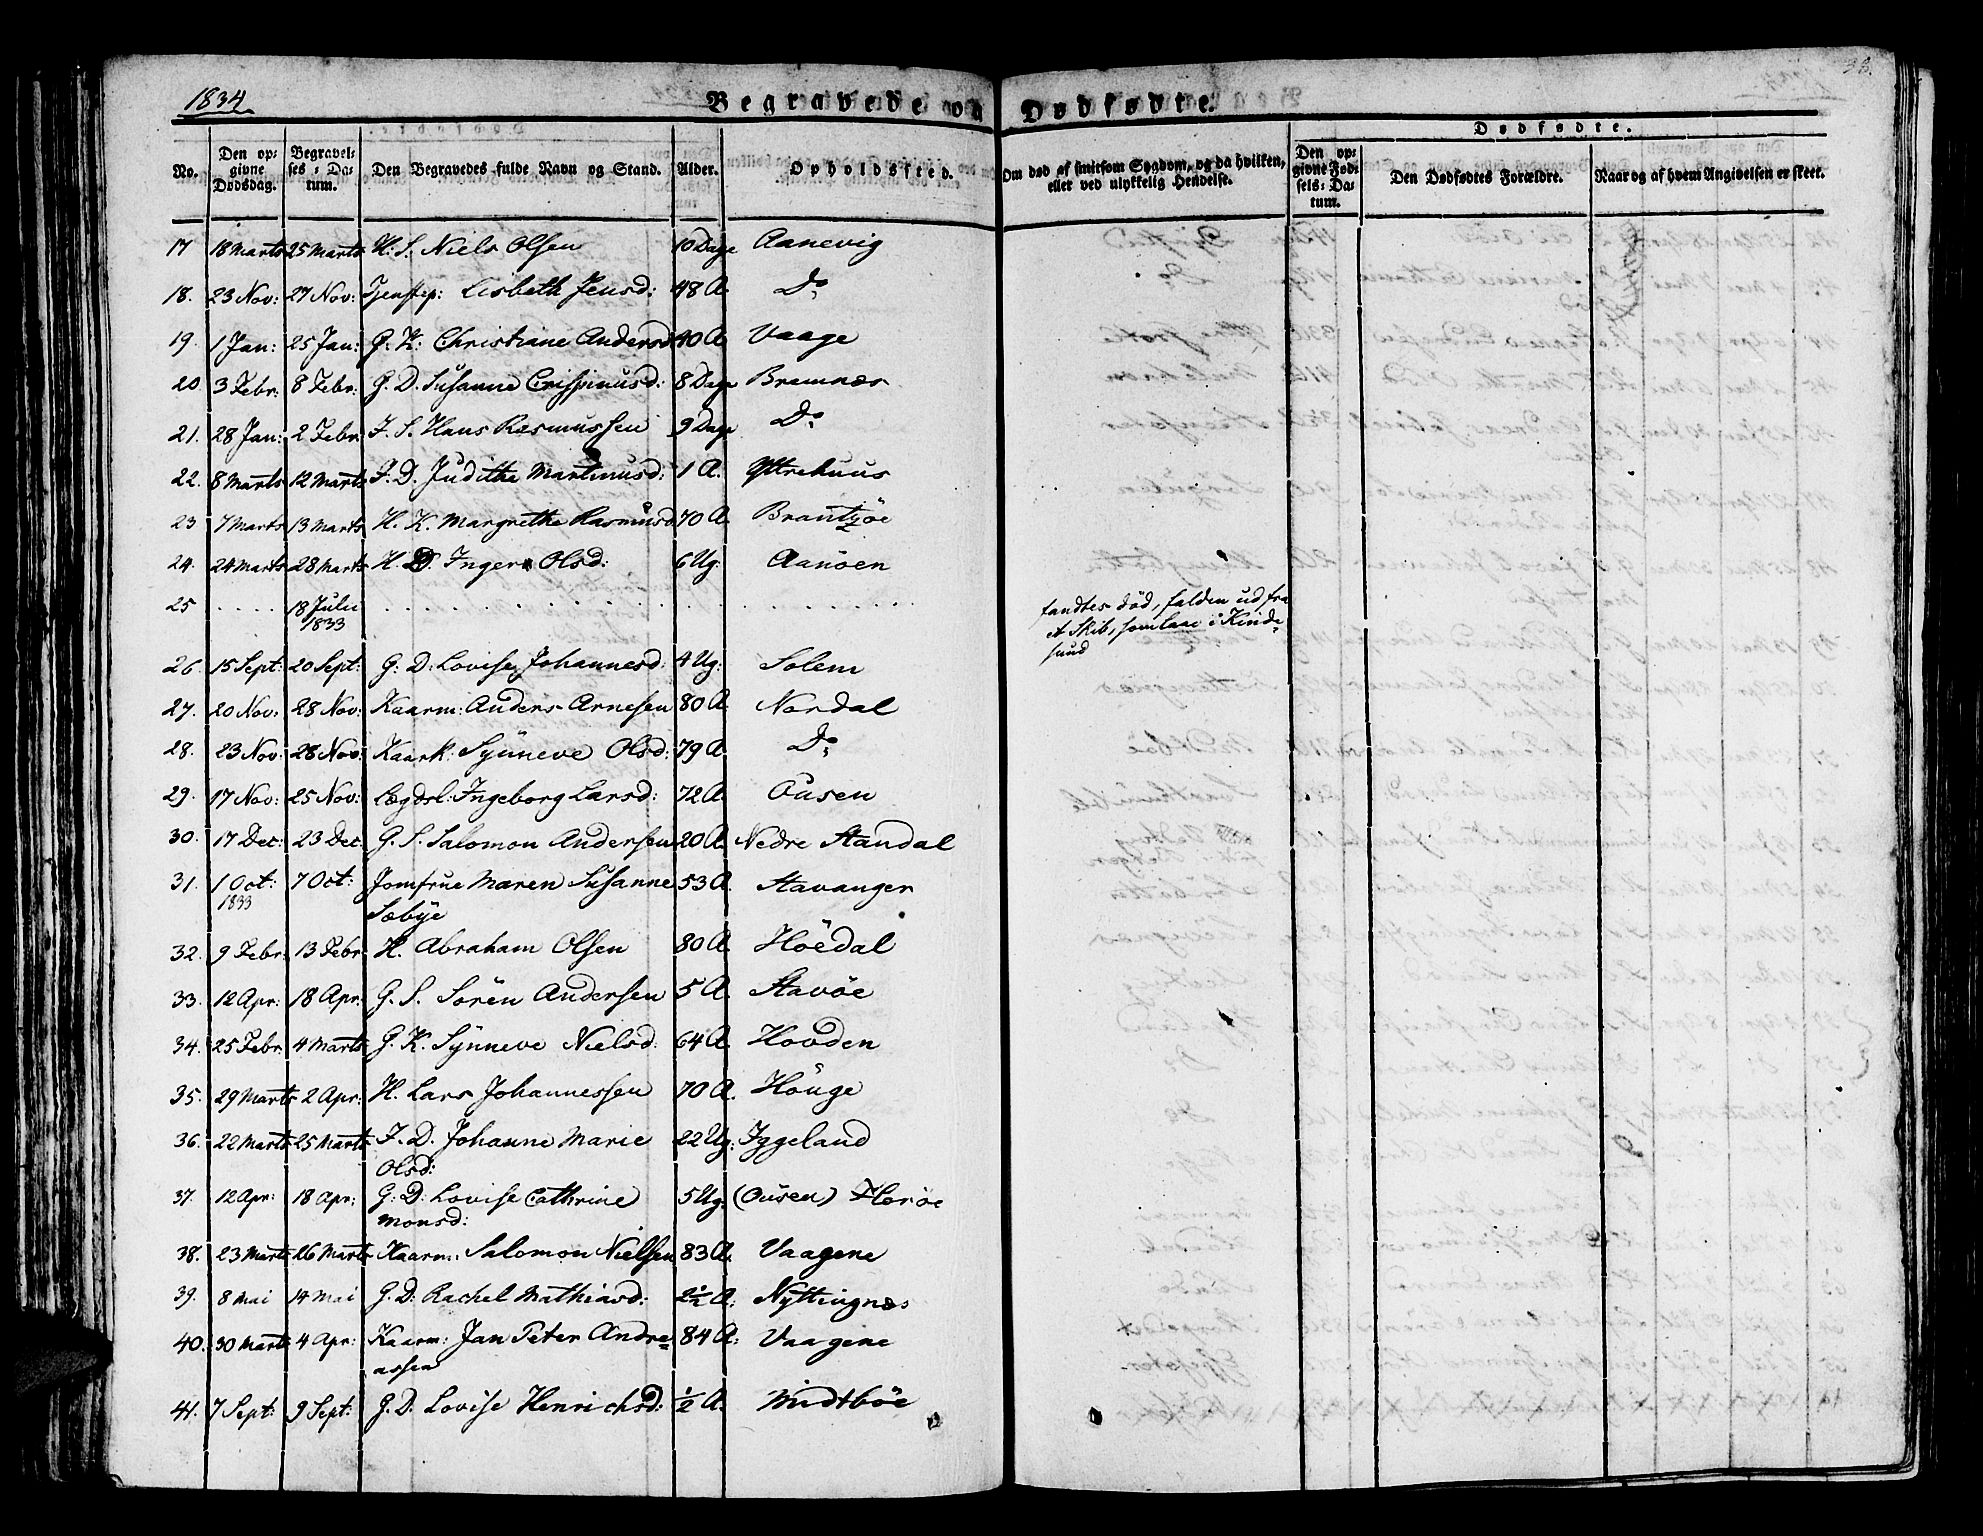 1834
Begravede og Dødfødte.
No.
Den op-
givne
Dødsdag.
Begravel-
ses - Da-
tum.
Den Begravedes fulde Navn og Stand.
Alder.
Opholdssted.
Om død af smitsom Sygdom, og da hvilken,
eller ved ulykkelig Hendelse.
Dødfødte.
Den op-
givne Fød-
sels-Da-
tum.
Den Dødfødtes Forældre.
Naar og af hvem Angivelsen er skeet.
17 18 Marts 25 Marts H. S. Niels Olsen 10 Dage Aanevig
18. 23 Nov: 27 Nov: Tjenstep: Lisbeth Jensd: 48 A. Do
19. 1 Jan: 25 Jan: G. K: Christiane Andersd 40 A Vaage
20. 3 Febr: 8 Febr: G. D. Susanne Crispinusd: 8 Dage Bremnæs
21. 28 Jan: 2 Febr. F. S. Hans Rasmussen 9 Dage Do
22. 8 Marts 12 Marts F. D. Juditha Martinusd: 1 A. Yttrehuus
23 7 Marts 13 Marts H. K. Margrethe Rasmusd 70 A. Brantzöe
24. 24 Marts 28 Marts H. D. Inger Olsd: 6 Ug: Aanöen
25 . . . . 18 Julii . . . . . . . . fandtes död, falden ud fra
1833 et Skib, som laae i Kinde-
sund
26. 15 Sept: 20 Sept: G: D: Lovise Johannesd: 4 Ug: Solem
27. 20 Nov: 28 Nov: Kaarm: Anders Arnesen 80 A. Nordal
28. 23 Nov: 28 Nov: Kaark: Synneve Olsd: 79 A. Do
29. 17 Nov: 25 Nov: Lægdsl: Ingeborg Larsd: 72 A. Ousen
30. 17 Dec: 23 Dec: G. S. Salomon Andersen 20 A. Nedre Standal
31. 1 Oct: 7 Oct: Jomfrue Maren Susanne 53 A. Stavanger
1833 Sæbye
32. 9 Febr: 13 Febr. H. Abraham Olsen 80 A. Höedal
33. 12 Apr: 18 Apr: G. S. Sören Andersen 5 A. Stavöe
34. 25 Febr 4 Marts G. K. Synneve Nielsd: 64 A. Hovden
35. 29 Marts 2 Apr: H. Lars Johannessen 70 A. Höuge
36. 22 Marts 25 Marts F. D. Johanne Marie 22 Ug: Iggeland
Olsd:
37. 12 Apr: 18 Apr: G: D: Lovise Cathrine 5 Ug: (Ousen) Horöe
Monsd:
38. 23 Marts 26 Marts Kaarm: Salomon Nielsen 83 A. Vaagene
39. 8 Mai 14 Mai G. D: Rachel Mathiasd: 2½ A: Nyttingnæs
40. 30 Marts 4 Apr: Kaarm: Jan Peter Andre= 84 A: Vaagene
assen
41. 7 Sept: 9 Sept: G. D. Lovise Henrichsd: ½ A. Midtböe